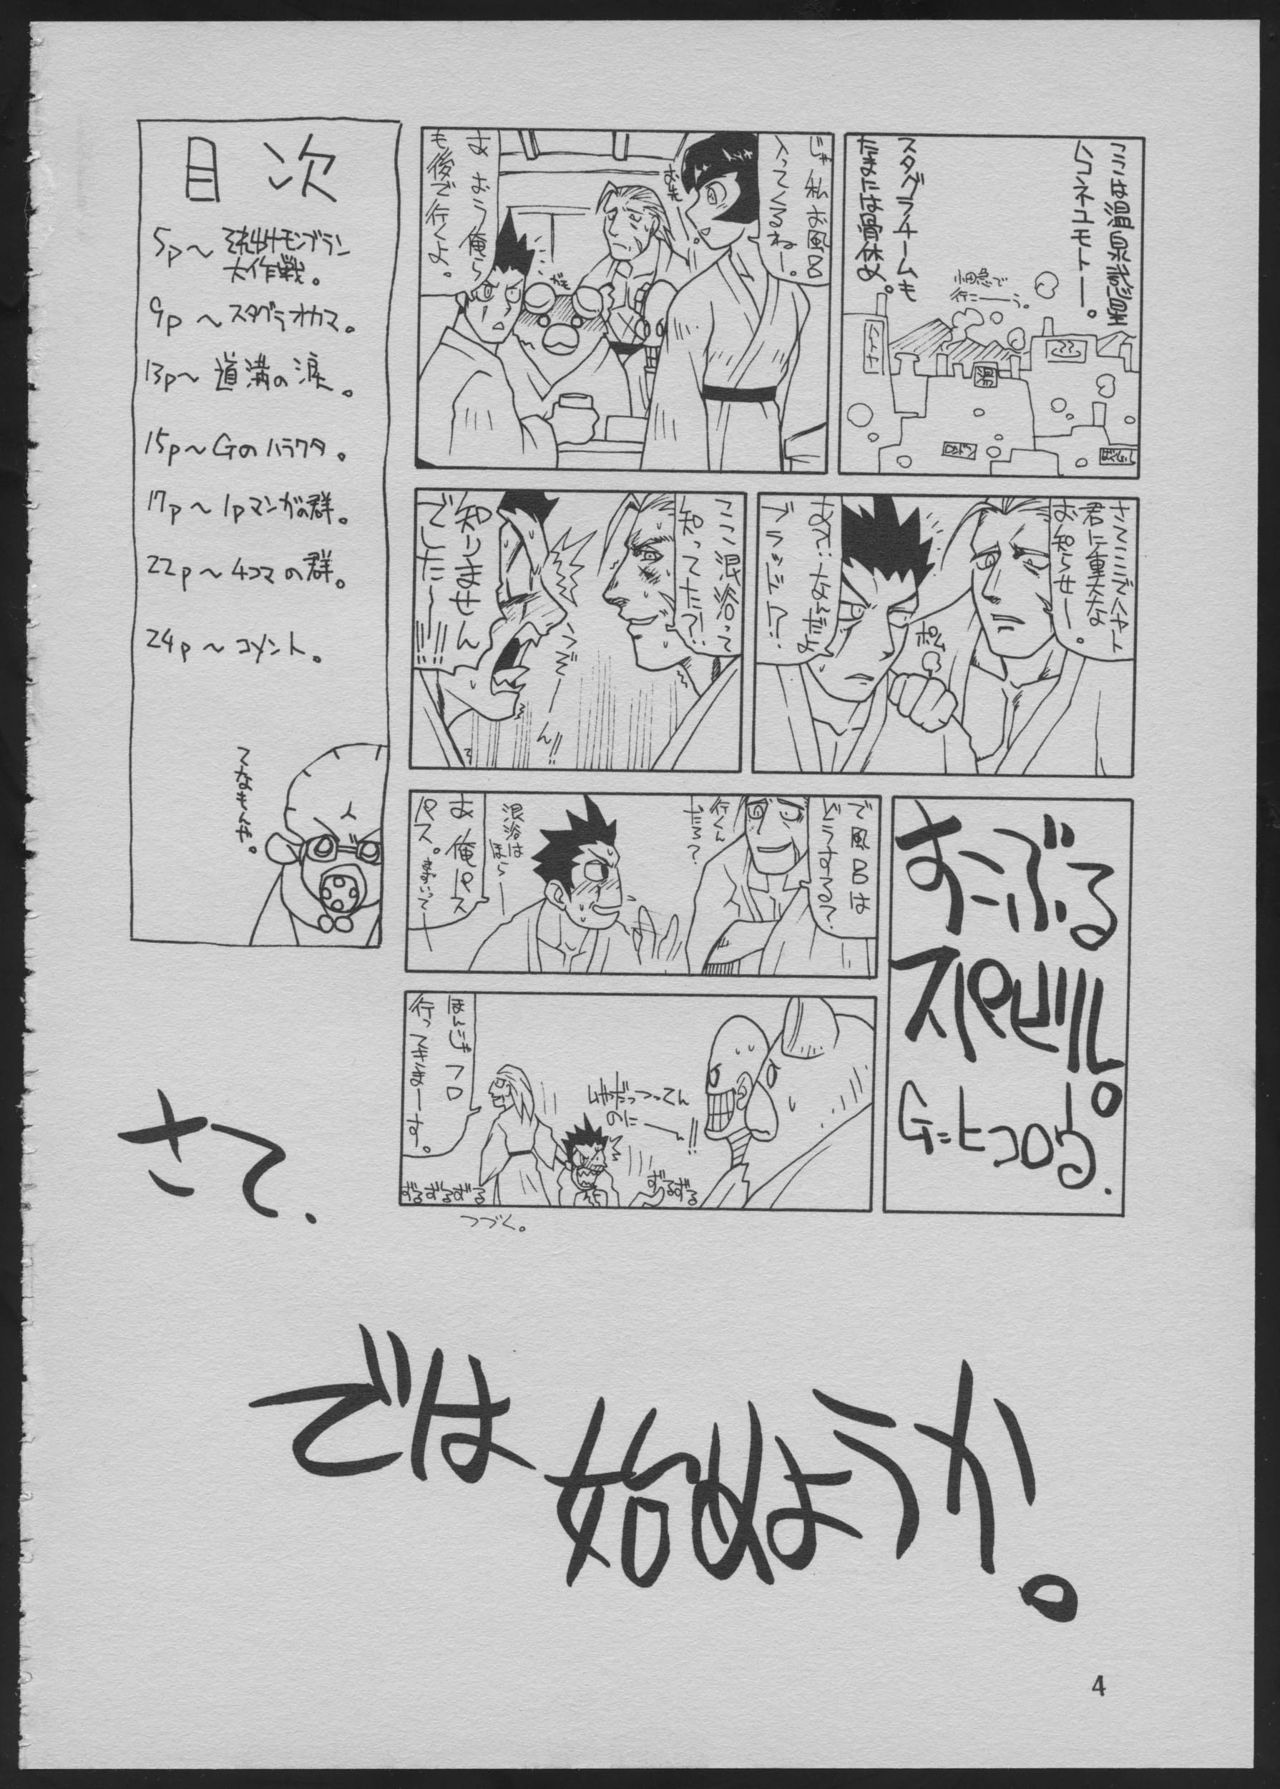 ここは温泉惑星
ハコネユモトー。
スタグラチームも
たまには骨休め。
小田急で
行こーう。
湯
じゃ私お風呂
入ってくるねー。
あ おう俺ら
も後で行くよ。
君に重大な
お知らせー。
あん…なんだよ
ブラッド!?
ポン
ここ混浴って
知ってた?
知りません
でしたー!!!
すこぶる
スパビル。
G=ヒコロウ.
で風呂は
どうなる?
行くん
だろ?
混浴は
ほら
あ 俺パス
パス。
ほんじゃフロ
行ってきまーす。
やだっつってん
のにー!!
ずるずるずる
ずるずる
つづく。
目次
5p〜それ出せモンブラン
大作戦。
9p〜スタグラオカマ。
13p〜道満の涙。
15p〜Gのハラワタ。
17p〜1pマンガの群。
22p〜4コマの群。
24p〜コメント。
てなもんや。
さて.
では
始めようか。
4